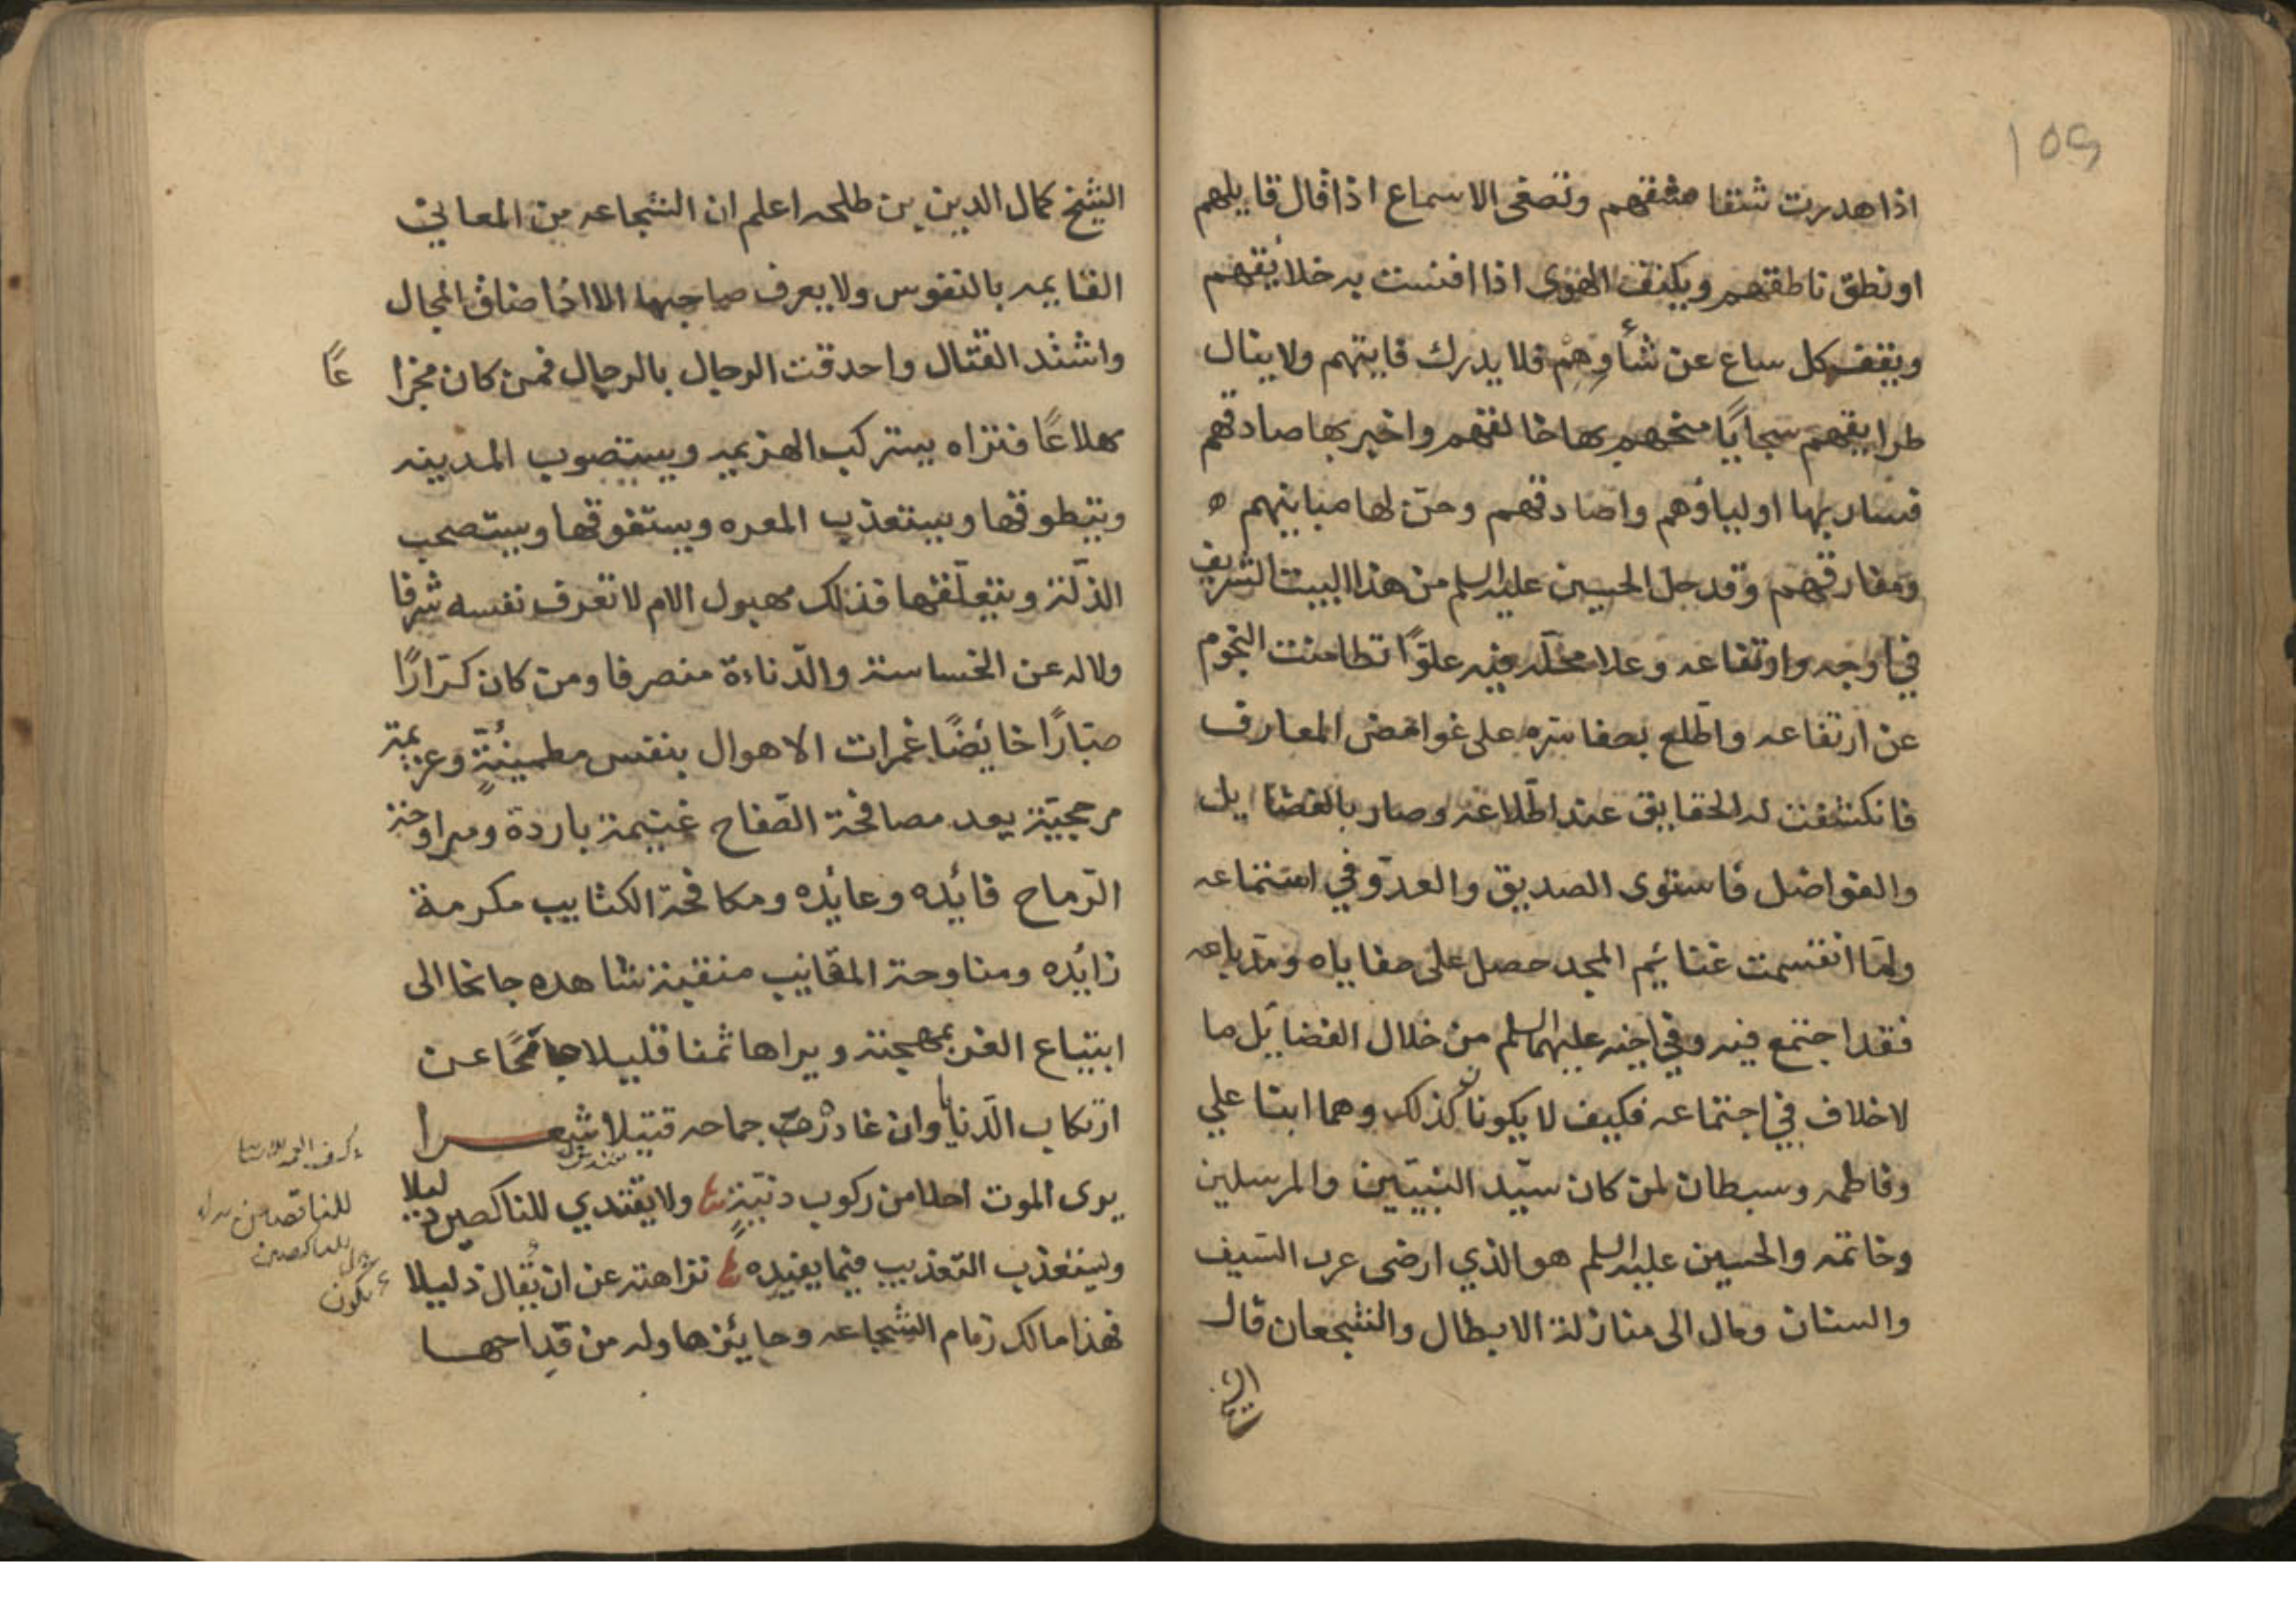 اذا هدرت شقا شقهم وتصغى الاسماع اذا قال قايلهم
او نطق ناطقهم ويكثف الهوى اذا اقتست به خلائقهم
ويقف كل ساع عن شأوهم فلا يدرك فايتهم ولا ينال
طرايقهم سجايًا منحهم بها خالقهم واخبر بها صادقهم
فسار بها اولياؤهم واصادقهم وحن لها مباينهم ه
ومفارقهم وقد حل الحسين عليه السلم من هذا البيت الشريف
في اوجه وارتفاعه وعلا محلّه فيه علوًّا تطامنت النجوم
عن ارتفاعه واطّلع بصفا سرّه على غوامض المعارف
فانكشفت له الحقايق عند اطّلاعه وصار بالفضايل
والفواضل فاستوى الصديق والعدوّ في استماعه
ولمّا انقسمت غنائم المجد حصل على صفاياه ومرباعه
فقد اجتمع فيه وفي اخيه عليهما السلم من خلال الفضايل ما
لا خلاف في اجتماعه فكيف لا يكونان كذلك وهما ابنا علي
وفاطمه وسبطان لمن كان سيّد النبيّين والمرسلين
وخاتمه والحسين عليه السلم هو الذي ارضى غرب السّيف
والسنان ومال الى منازلة الابطال والشجعان قال
الشيخ
الشيخ كمال الدين بن طلحه اعلم ان الشجاعه من المعاني
القايمه بالنفوس ولا يعرف صاحبها الا اذا ضاق المجال
واشتد القتال واحدقت الرجال بالرجال فمن كان مجزا
عًا
هلاعًا فتراه يستركب الهزيمه ويستصوب المدينه
ويتطوقها ويستعذب المعره ويستفوقها ويستصحب
الذلّة ويتعلّقها فذلك مهبول الام لا تعرف نفسه شرفا
ولا له عن الخساسة والدّناءة منصرفا ومن كان كرّارًا
صبّارًا خايضًا غمرات الاهوال بنفس مطمئنّةٍ وعزيمة
مرجحيّة يعد مصافحة الصّفاح غنيمة باردة ومراوحة
الرّماح فائده وعائده ومكافحة الكتايب مكرمة
زائده ومناوحة المقانب منقبة شاهده جانحا الى
ابتياع العز بمهجته ويراها ثمنا قليلا جامحًا عن
ارتكاب الدّنايا وان غادره جماحه قتيلا شعـــرا
يرى الموت احلا من ركوب دنيّةٍ ولا يقتدي للناكصين دليلا
ويستعذب التعذيب فيما يفيده نزاهته عن ان يقال ذليلا
فهذا مالك زمام الشجاعه وحايئزها وله من قداحهـا
للناقصين
للناكصين
يكون